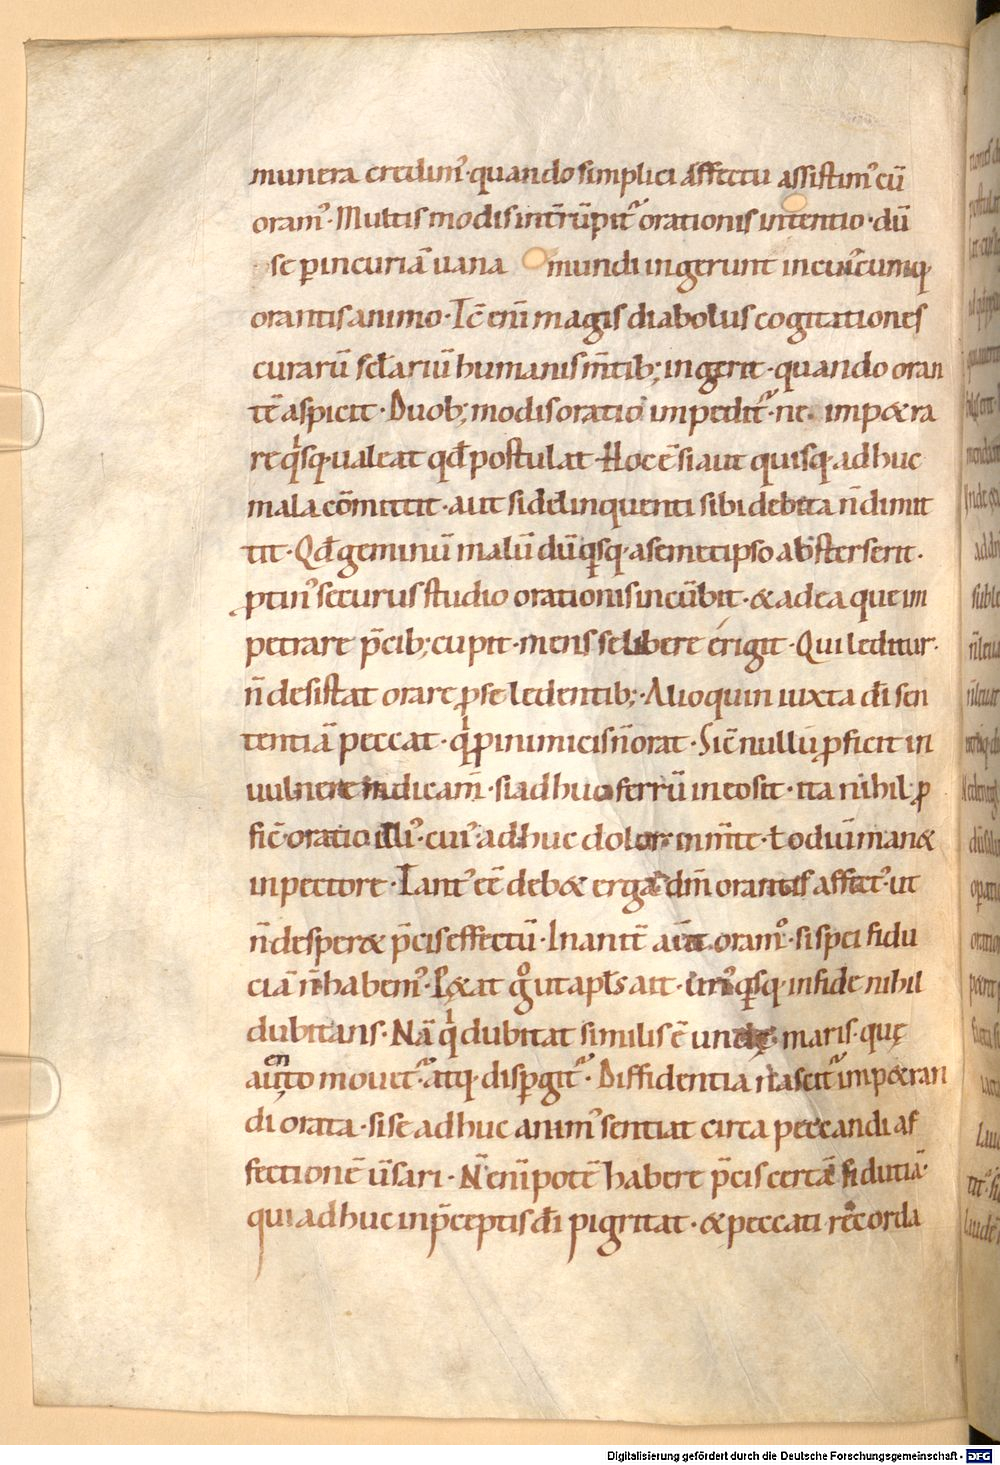 munera credim᾽· quando simplici affectu assistim᾽ cū
oram᾽· Multis modis int̄rūpit᾽ orationis intentio· dū
se p̱ incuriā uana mundi ingerunt in cui᾽cumq·
orantis animo· Tc̄ eni᷄ magis diabolus cogitationes
curarū sc̄lariū humanis m̄tib; ingerit· quando oran
tē aspicit· Duob; modis oratio impedit᾽· ne impetra
re qͥsq· ualeat qđ postulat· Hoc ē si aut quisq· adhuc
mala cōmittit· aut si delinquenti sibi debita n̄ dimit
tit· Qđ geminū malū dū qͥsq· a semetipso absterserit·
ꝓtin᾽ securus studio orationis incūbit· & ad ea que im
petrare p̄cib; cupit· mens se libere erigit· Qui leditur·
n̄ desistat orare ꝓ se ledentib;· Alioquin iuxta dn̄i sen
tentiā peccat· qͥ ꝓ inimicis n̄ orat· Sic̄ nullū ꝓficit in
uulnere medicam̄· si adhuc ferrū in eo sit· ita nihil ꝓ
fic̄ oratio illi᾽· cui᾽ adhuc dolor in m̄te· t̵ odiū man&
in pectore· Tant᾽ eē deb& erga dm̄ orantis affect᾽· ut
n̄ desper& p̄cis effectū· Inanit̄ aut̄ oram᾽· si spei fidu
ciā n̄ habem᾽· P&at gͦ ut apl̄s ait· un᾽qͥsq· in fide nihil
dubitans· Nā qͥ dubitat similis ē undę maris· quę
a uento mouet᾽ atq· disp̱git᾽· Diffidentia nascit᾽ imp&ran
di orata· si se adhuc anim᾽ sentiat circa peccandi af
fectionē ūsari· N̄ eni᷄ potē habere p̄cis certā fidutiā·
qui adhuc in p̄ceptis dī pigritat· & peccati recorda
Digitalisierung gefördert durch die Deutsche Forschungsgemeinschaft - DFG